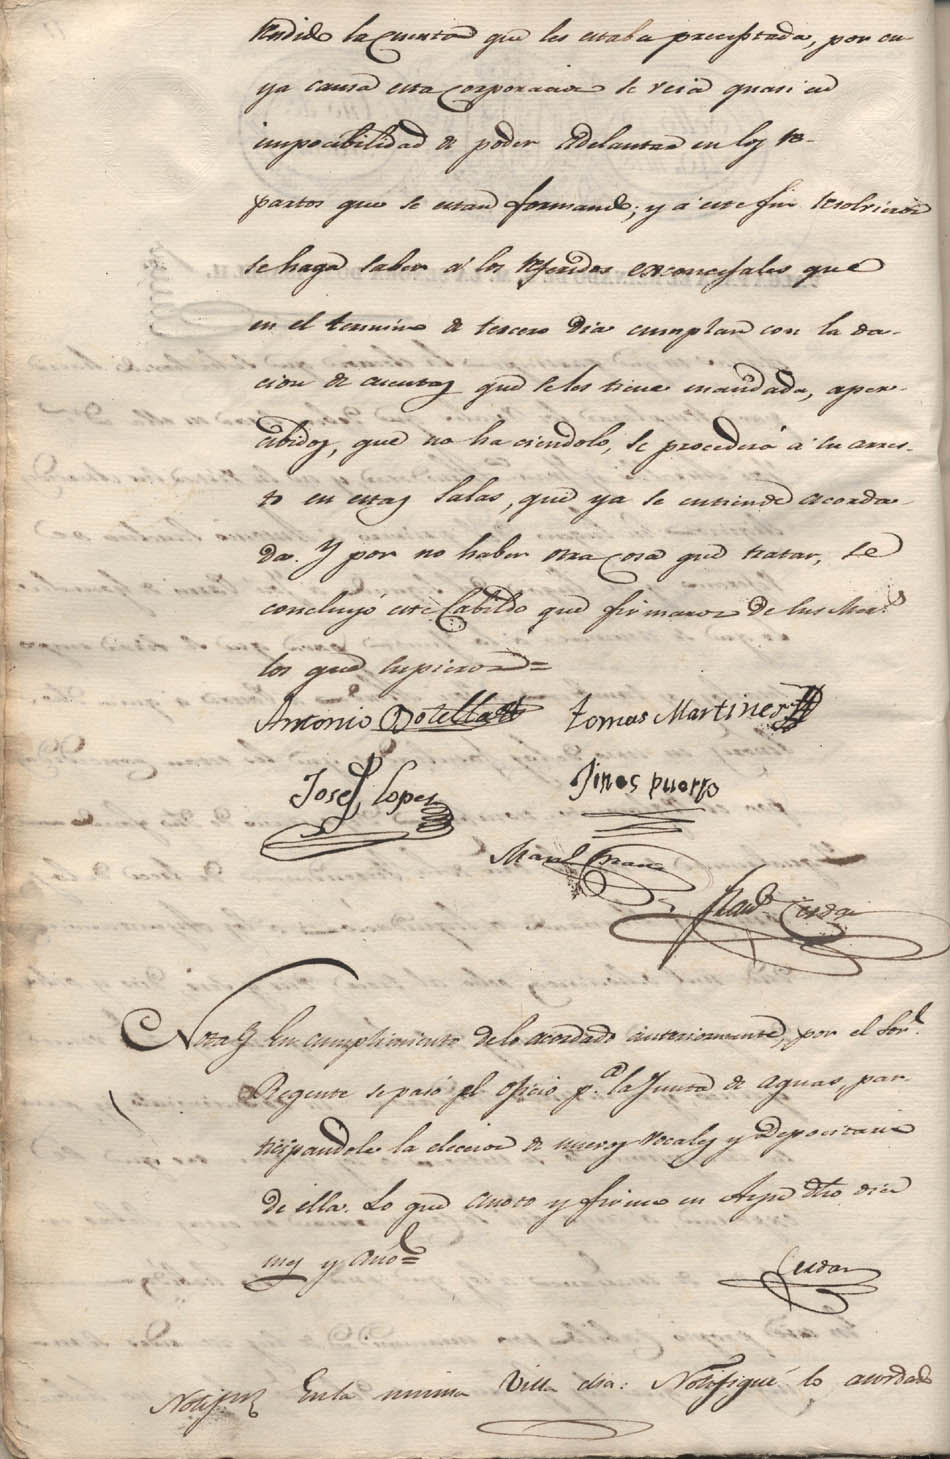 rendido la cuenta que les estaba preceptada, por cu-
ya causa esta Corporacion se verá quasi en
imposibilidad de poder adelantar en los re-
partos que se estan formando; y á este fin resolvieron
se haga saber á los referidos exconcejales que
en el termino de tercero dia cumplan con la da-
cion de cuentas que se les tiene mandada, aper-
cibidos, que no haciendolo, se procederá á su arres-
to en estas Salas, que ya se entiende acorda-
do. Y por no haber otra cosa que tratar, se
concluyó este Cabildo que firmaron de sus Mrds
los que supieron=
Antonio Botella tomas Martines
Josef Lopez Jines puerto
Manl
Cerdan
Nota En cumplimiento de lo acordado anteriormente, por el Sor
Regente se pasó el oficio pa la Junta de Aguas, par-
ticipandole la eleccion de nuevos vocales y Depocitario
de ella. Lo que anoto y firmo en Aspe dho dia
mes y año=
Cerdan
En la misma Villa dia: Notifiqué lo acordado